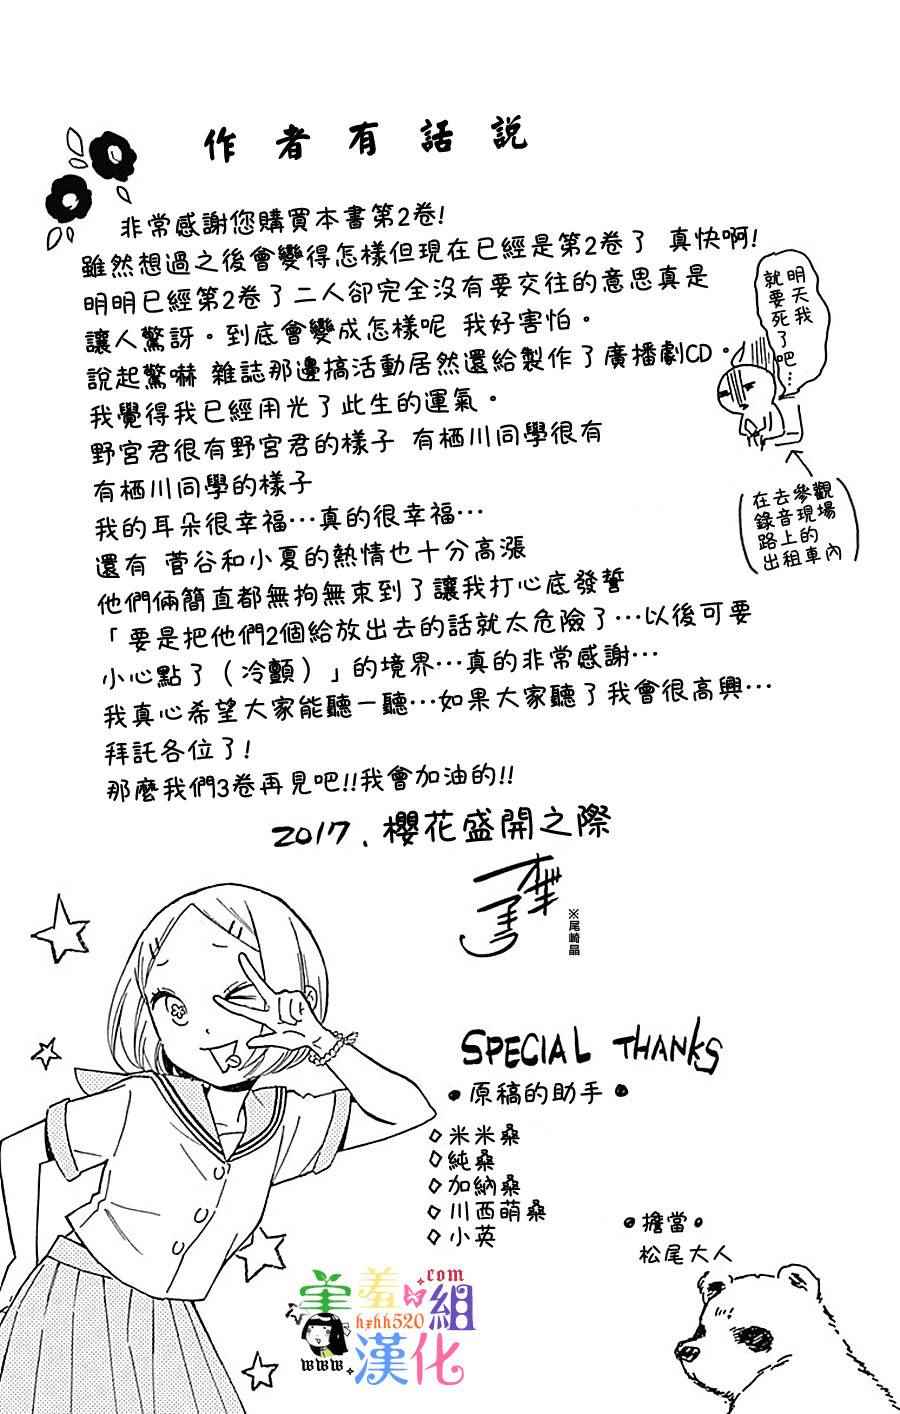 作者有話説
非常感謝您購買本書第2卷!
雖然想過之後會變得怎樣但現在已經是第2卷了 真快啊!
明明已經第2卷了二人卻完全沒有要交往的意思真是
讓人驚訝。到底會變成怎樣呢 我好害怕。
說起驚嚇 雜誌那邊搞活動居然還給製作了廣播劇CD。
我覺得我已經用光了此生的運氣。
野宮君很有野宮君的樣子 有栖川同學很有
有栖川同學的樣子
我的耳朵很幸福…真的很幸福…
還有 菅谷和小夏的熱情也十分高漲
他們倆簡直都無拘無束到了讓我打心底發誓
「要是把他們2個給放出去的話就太危險了…以後可要
小心點了（冷顫）」的境界…真的非常感謝…
我真心希望大家能聽一聽…如果大家聽了我會很高興…
拜託各位了!
那麼我們3卷再見吧!!我會加油的!!
2017.櫻花盛開之際
※尾崎晶
明天我
就要死了吧…
(在去參觀
錄音現場
路上的
出租車內)
SPECIAL THANKS
•原稿的助手•
◇米米桑
◇純桑
◇加納桑
◇川西萌桑
◇小英
•擔當•
松尾大人
羞羞組
.com
hxhh520
www.
漢化